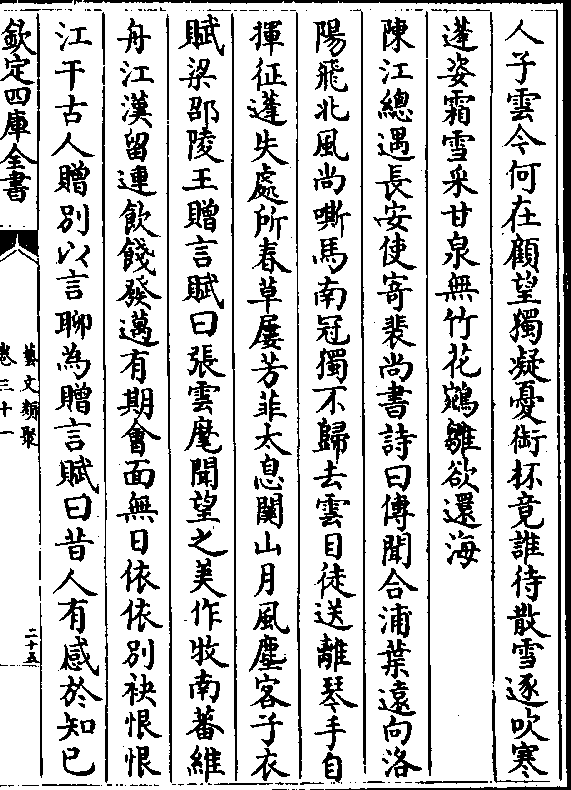 人子雲今何在顧望獨凝憂銜杯竟誰待散雪逐吹寒
蓬姿霜雪采甘泉無竹花鵷雛欲還海
陳江總遇長安使寄裴尚書詩曰傳聞合浦葉遠向洛
陽飛北風尚嘶馬南冠獨不歸去雲目徒送離琴手自
揮征蓬失處所春草屢芳菲太息關山月風塵客子衣
賦梁邵陵王贈言賦曰張雲麾聞望之美作牧南蕃維
舟江漢留連飲餞發邁有期會面無日依依別袂恨恨
江干古人贈別以言聊為贈言賦曰昔人有感於知已
欽定四庫全書
藝文類聚
卷三十一
二十五